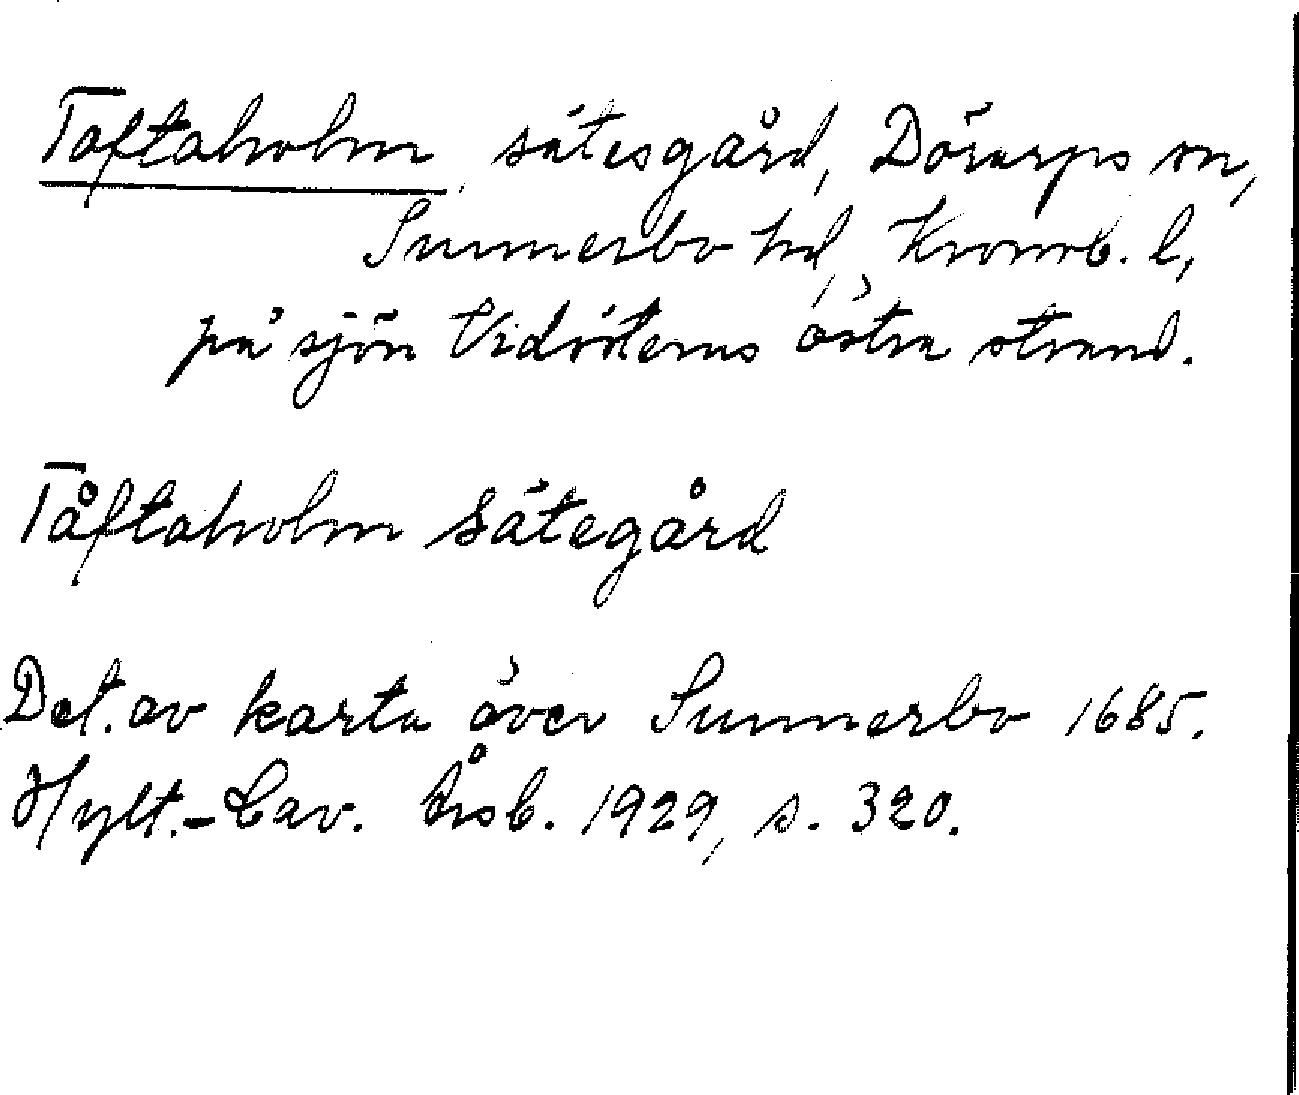 Toftaholm, sätesgård, Dörarps sn,
Sunnerbo hd, Kronob. l,
på sjön Vidösterns östra strand.
Tåftaholm Sätegård
Det. av karta över Sunnerbo 1685.
Hylt.-Cav. Årsb. 1929, s. 320.